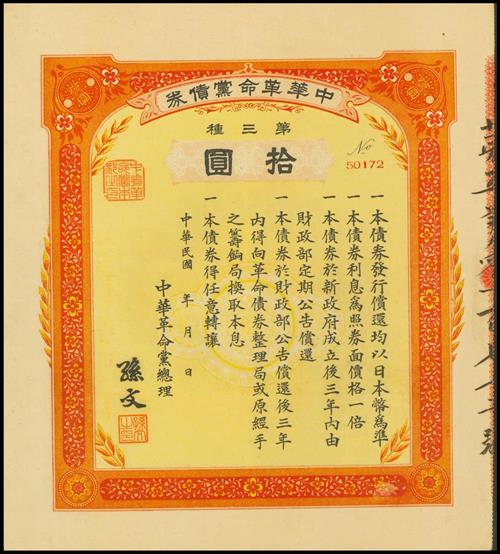 中華革命黨債券
第三種
拾圓
No 50172
一本債券發行償還均以日本幣爲準
一本債券利息爲照券面價格一倍
一本債券於新政府成立後三年內由
財政部定期公告償還
一本債券於財政部公告償還後三年
內得向革命債券整理局或原經手
之籌餉局換取本息
一本債券得任意轉讓
中華民國 年 月 日
中華革命黨總理
孫文